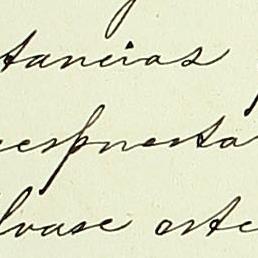 tancias
respuesta
lvase este